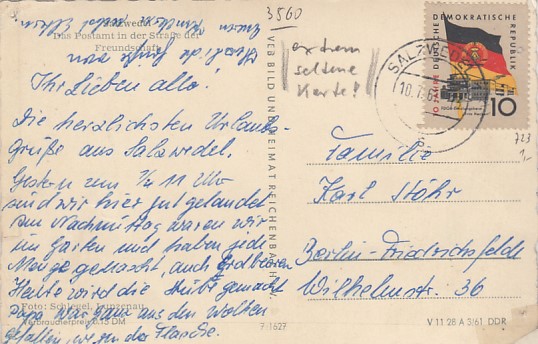 Salzwedel
Das Postamt in der Straße der
Freundschaft
Ihr Lieben alle!
Die herzlichsten Urlaubs-
grüße aus Salzwedel.
Gestern um 1/2 11 Uhr
sind wir hier gut gelandet
Am Nachmittag waren wir
im Garten und haben jede
Menge gemacht, auch Erdbeeren
Heute wird die Stube gemacht
Papa war ganz aus den Wolken
gefallen, wegen der Flasche.
Foto: Schlegel, Lunzenau
Verbraucherpreis 0.15 DM
7 1627
VEB BILD UND HEIMAT REICHENBACH I. V.
3560
extrem
seltene
Karte!
SALZWEDEL
10.7.6
10 JAHRE DEUTSCHE DEMOKRATISCHE REPUBLIK
10
723
1,-
Familie
Karl Stöhr
Berlin-Friedrichsfelde
Wilhelmstr. 36
V 11 28 A 3/61 DDR